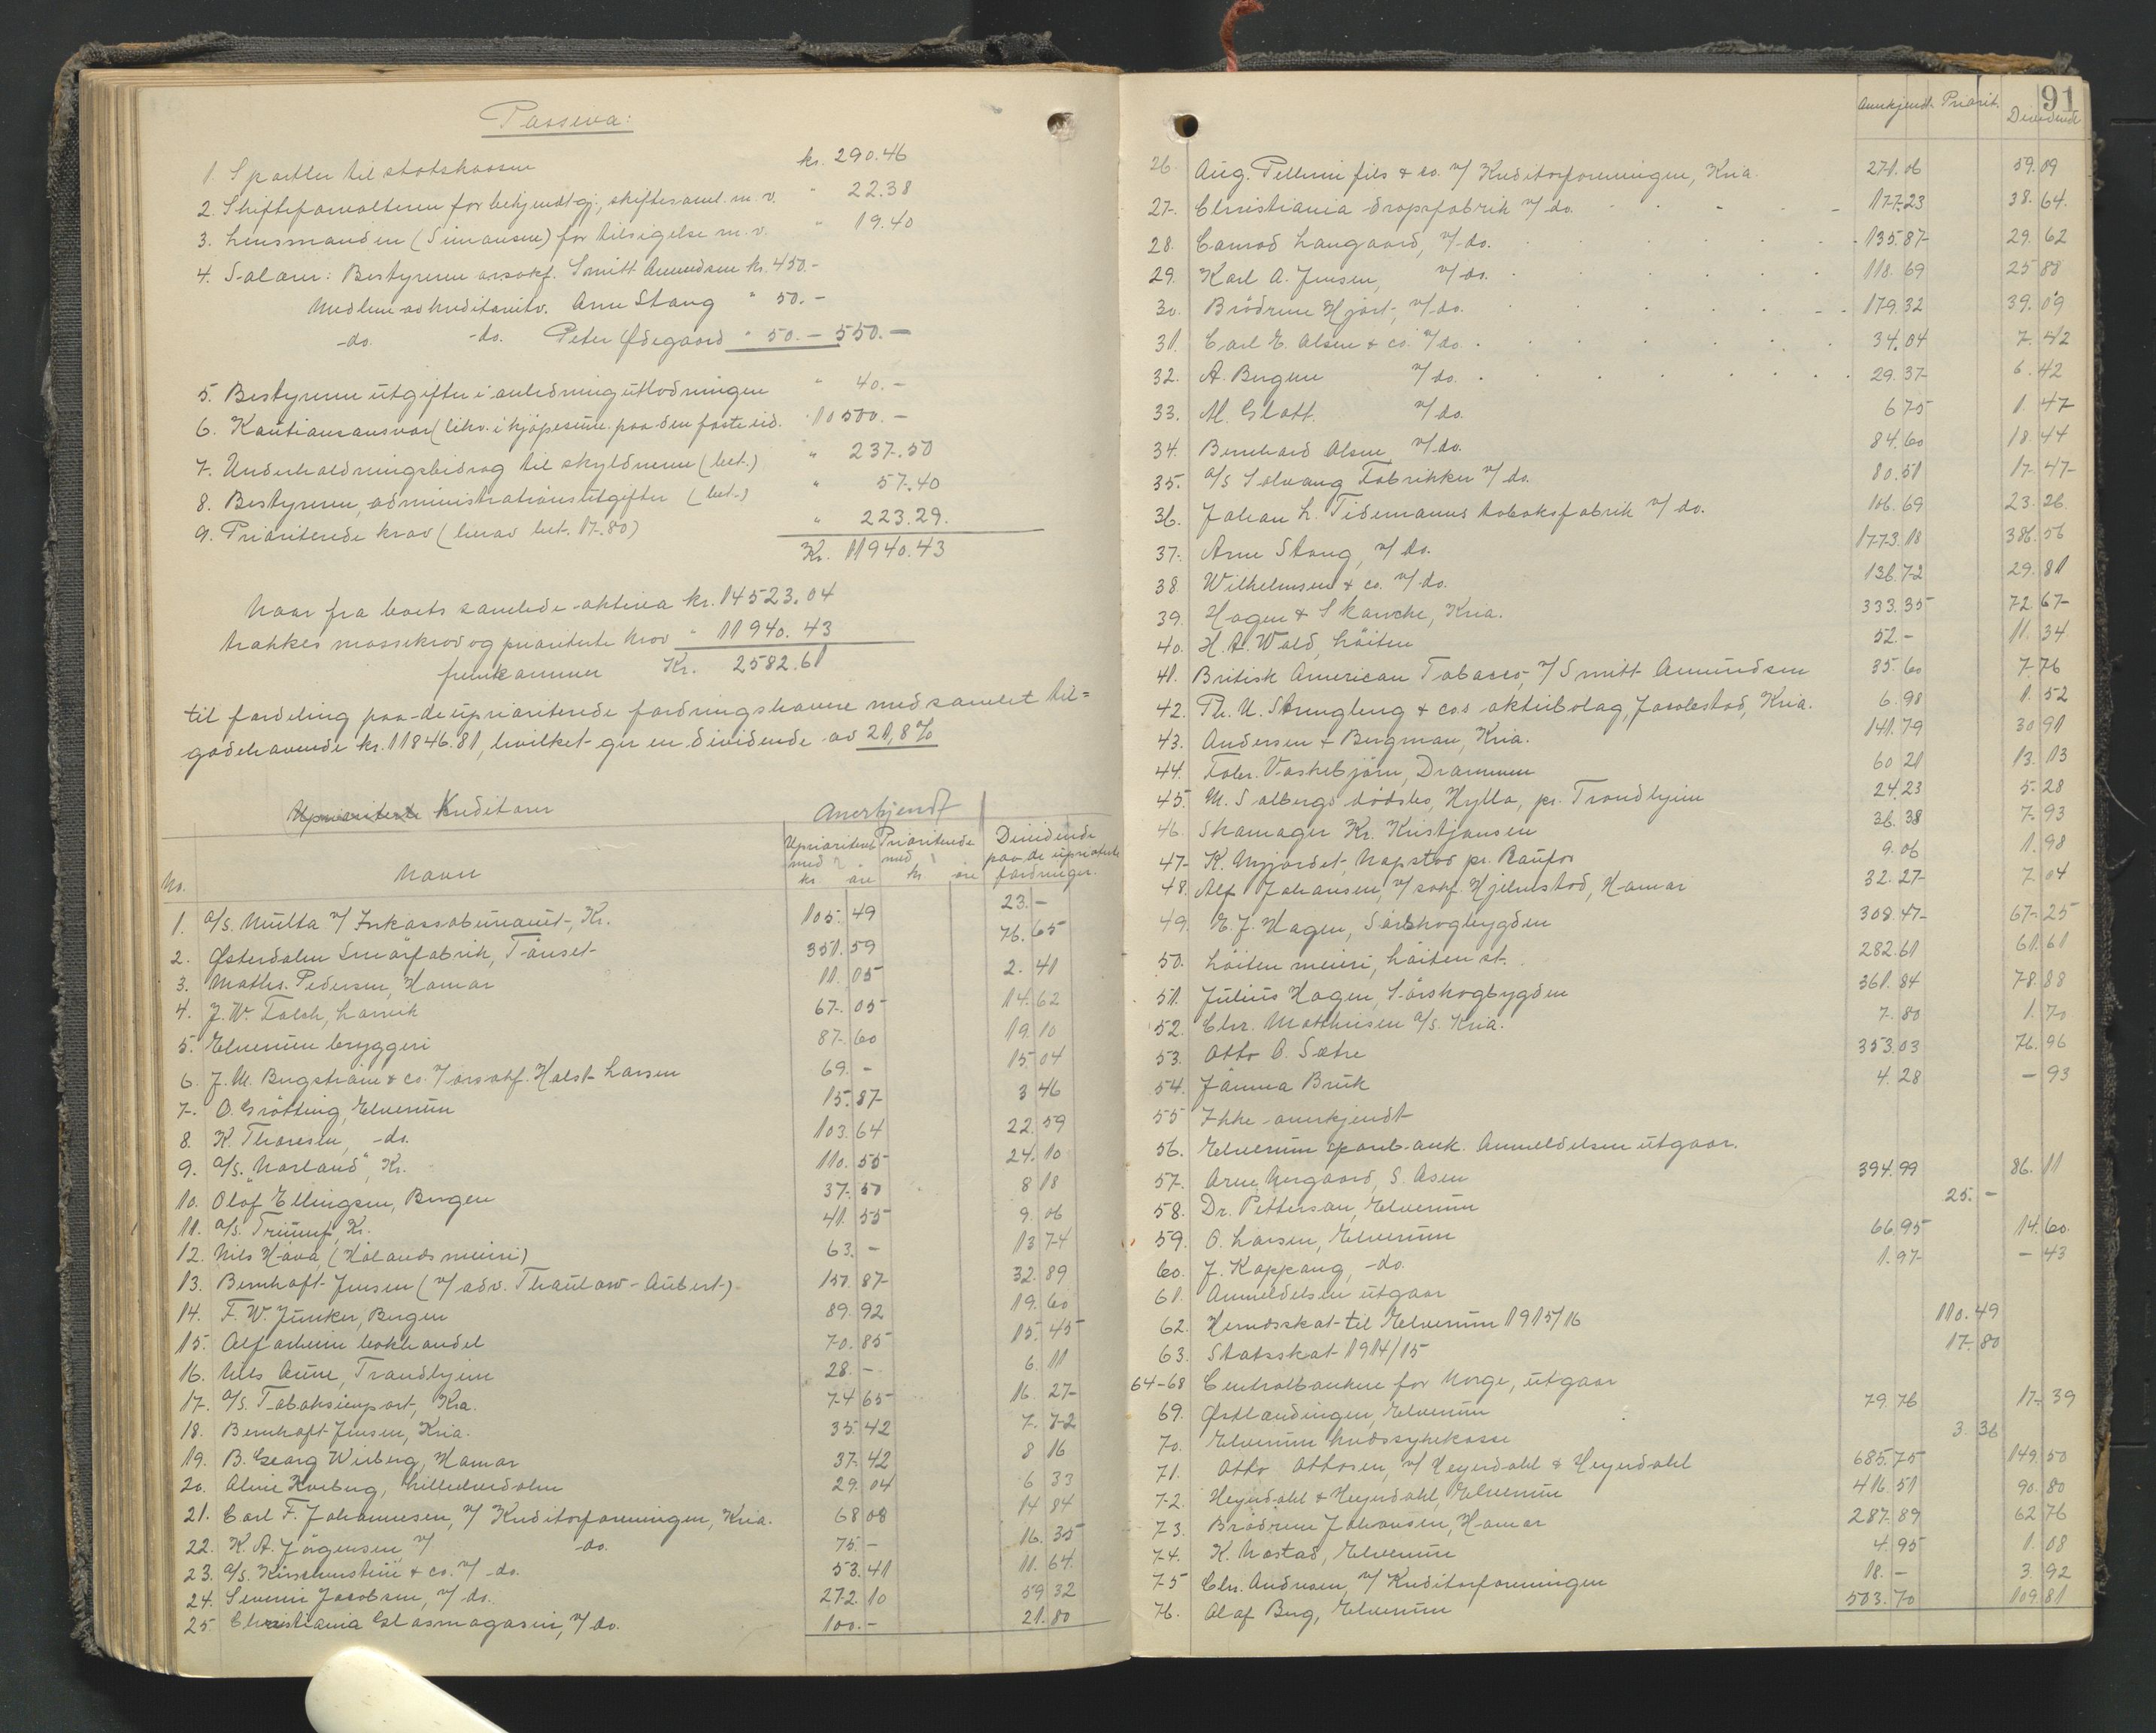 Passiva:
1. Sportler til statskassen kr. 290.46
2. Skifteforvalteren for bekjendtgj., skiftesaml. m. v. " 22.38
3. Lensmanden (Simonsen) for tilsigelse m. v. " 19.40
4. Salærer: Bestyreren orsakf. Smitt Amundsen kr. 450.-
Medlem av kreditorutv. Arne Stang " 50.-
-do. -do. Peter Ødegaard " 50.- 550.-
5. Bestyrerens utgifter i anledning utlodningen " 40.-
6. Kautionsansvar (likv. i kjøpesum. paa den faste eid. " 10500.-
7. Underholdningsbidrag til skyldneren (bet.) " 237.50
8. Bestyreren, administrationsutgifter (bet.) " 57.40
9. Prioriterede krav (herav bet. 17.80) " 223.29.
Kr. 11940.43
Naar fra boets samlede aktiva kr. 14523.04
trækkes massekrav og prioriterte krav " 11940.43
fremkommer Kr. 2582.61
til fordeling paa de uprioriterede fordringshavere med samlet til=
godehavende kr. 11846.81, hvilket gir en dividende av 21,8 %
Uprioriterte Kreditorer Anerkjendt
No. Navn Uprioritert med kr. øre Prioriterede med kr. øre Dividende paa de uprioriterte fordringer.
1. A/S. Multa v/ Inkassobureauet, Kr. 105.49 23.-
2. Østerdalen Smörfabrik, Tönset 351.59 76.65
3. Maths. Pedersen, Hamar 11.05 2.41
4. J. W. Falch, Larvik 67.05 14.62
5. Elverum bryggeri 87.60 19.10
6. J. M. Bergström & co. v/ orsakf. Holst-Larsen 69.- 15.04
7. O. Grötting, Elverum 15.87 3 46
8. K. Thoresen, -do. 103.64 22.59
9. A/S. "Norland", Kr. 110.55 24.10
10. Olaf Ellingsen, Bergen 37.50 8 18
11. A/S. Triumf, Kr. 41.55 9.06
12. Nils Håvå, (Hålands meieri) 63.- 13 74
13. Bernhoft-Jensen (v/ adv. Thaulow-Aubert) 150.87 32.89
14. F. W. Junker, Bergen 89.92 19.60
15. Alfarheim bokhandel 70.85 15.45
16. Nils Aune, Trondhjem 28.- 6.11
17. A/S. Tobaksimport, Kra. 74 65 16.27
18. Bernhoft-Jensen, Kria. 35.42 7.72
19. B. Georg Wiberg, Hamar 37.42 8 16
20. Aline Korberg, Lilleelvedalen 29.04 6 33
21. Carl F. Johannesen, v/ Kreditorforeningen, Kria. 68 08 14 84
22. K. A. Jörgensen v/ -do. 75.- 16.35
23. A/S. Kirschenstein & co. v/ -do. 53.41 11.64
24. Severin Jacobsen, v/ do. 272.10 59 32
25 Christiania Glasmagasin, v/ do. 100.- 21.80
91
Anerkjend. Priorit. Dividende
26. Aug. Pellerin fils & co. v/ Kreditorforeningen, Kria 271.06 59.09
27. Christiania dropsfabrik v/ do. 177.23 38.64.
28. Conrad Langaard, v/ do. 135.87 29.62
29. Karl A. Jensen, v/ do. 118.69 25 88
30. Brödrene Hjort, v/ do. 179.32 39.09
31. Carl E. Olsen & co. v/ do. 34.04 7.42
32. A. Bergene v/ do. 29.37 6.42
33. M. Glott. v/ do. 6 75 1.47
34. Bernhard Olsen, v/ do. 84.60 18.44
35. A/S Solvang Fabrikker v/ do. 80.51 17.47
36. Johan H. Tidemanns tobaksfabrik v/ do. 106.69 23.26
37. Arne Stang, v/ do. 1773.18 386.56
38. Wilhelmsen & co. v/ do. 136.72 29.81
39. Hagen & Skancke, Kria. 333.35 72.67
40. H. A. Wold, Löiten 52.- 11.34
41. British American Tobacco, v/ Smitt Amundsen 35.60 7.76
42. Ph. U. Strengberg & co.s aktiebolag, Jacobstad, Kria. 6.98 1.52
43. Andersen & Bergman, Kria. 141.79 30 91
44. Fabr. Vaskebjörn, Drammen 60 21 13.13
45. M. Solbergs dödsbo, Hylla, pr. Trondhjem 24.23 5.28
46. Skomager Kr. Kristjansen 36.38 7.93
47. K. Nyjordet, Napstad pr. Raufos 9.06 1.98
48. Alf Johansen, v/ sakf. Hjelmstad, Hamar 32.27 7 04
49. E. J. Hagen, Sörskogbygden 308.47 67.25
50. Löiten meieri, Löiten st. 282.61 61.61
51. Julius Hagen, Sörskogbygden 361.84 78.88
52. Chr. Matthiesen A/S. Kria. 7.80 1.70
53. Otto O. Sætre 353.03 76.96
54. Jömna Bruk 4.28 -93
55 Ikke anerkjendt
56. Elverum sparebank. Anmeldelsen utgaar.
57. Arne Norgaard, S. Osen 394.99 86.11
58. Dr. Petterson, Elverum 25.-
59. O. Larsen, Elverum 66.95 14.60.
60. J. Koppang, -do. 1.97 -43
61. Anmeldelsen utgaar
62. Herredsskat til Elverum 1915/16 110.49
63. Statsskat 1914/15 17.80
64-68 Centralbanken for Norge, utgaar
69. Østlendingen, Elverum 79.76 17.39
70. Elverum kredssykekasse 3.36
71. Otto Ottosen, v/ Heyerdahl & Heyerdahl 685.75 149.50
72. Heyerdahl & Heyerdahl, Elverum 416.51 90.80
73. Brödrene Johansen, Hamar 287.89 62 76
74. K. Nastad, Elverum 4.95 1.08
75 Chr. Andresen, v/ Kreditorforeningen 18.- 3.92
76. Olaf Berg, Elverum 503.70 109.81